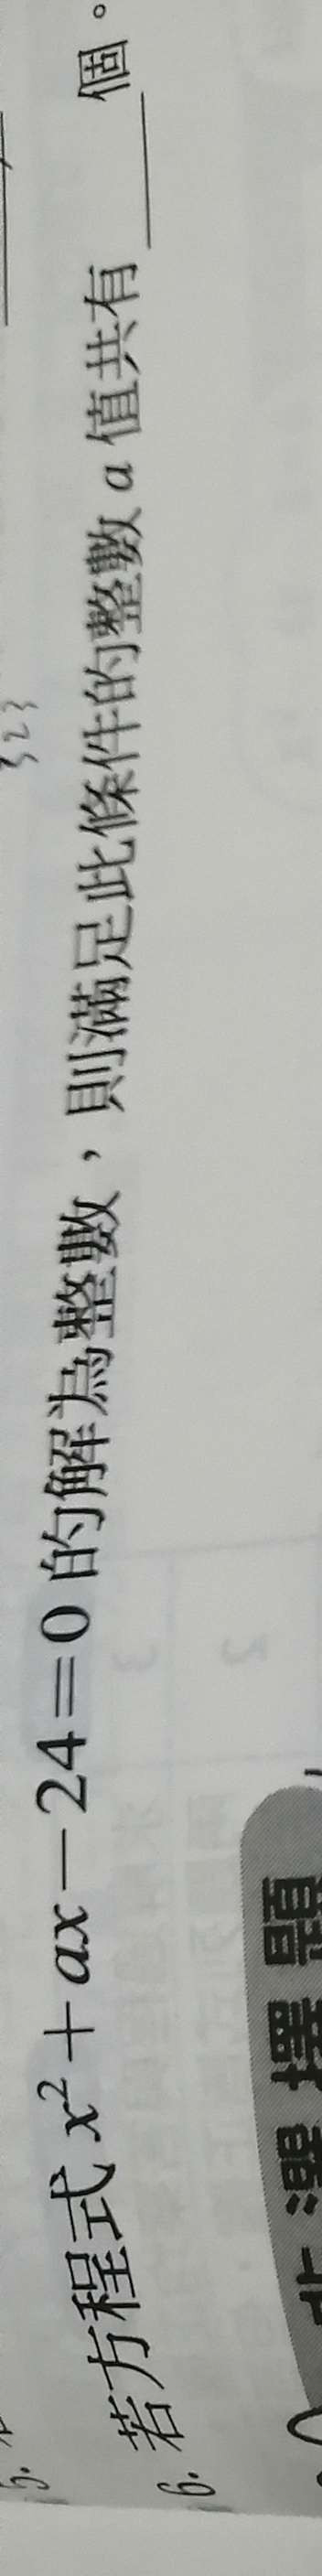 5.
323
6. 若方程式 x² + ax − 24 = 0 的解為整數，則滿足此條件的整數 a 值共有____個。
非選擇題